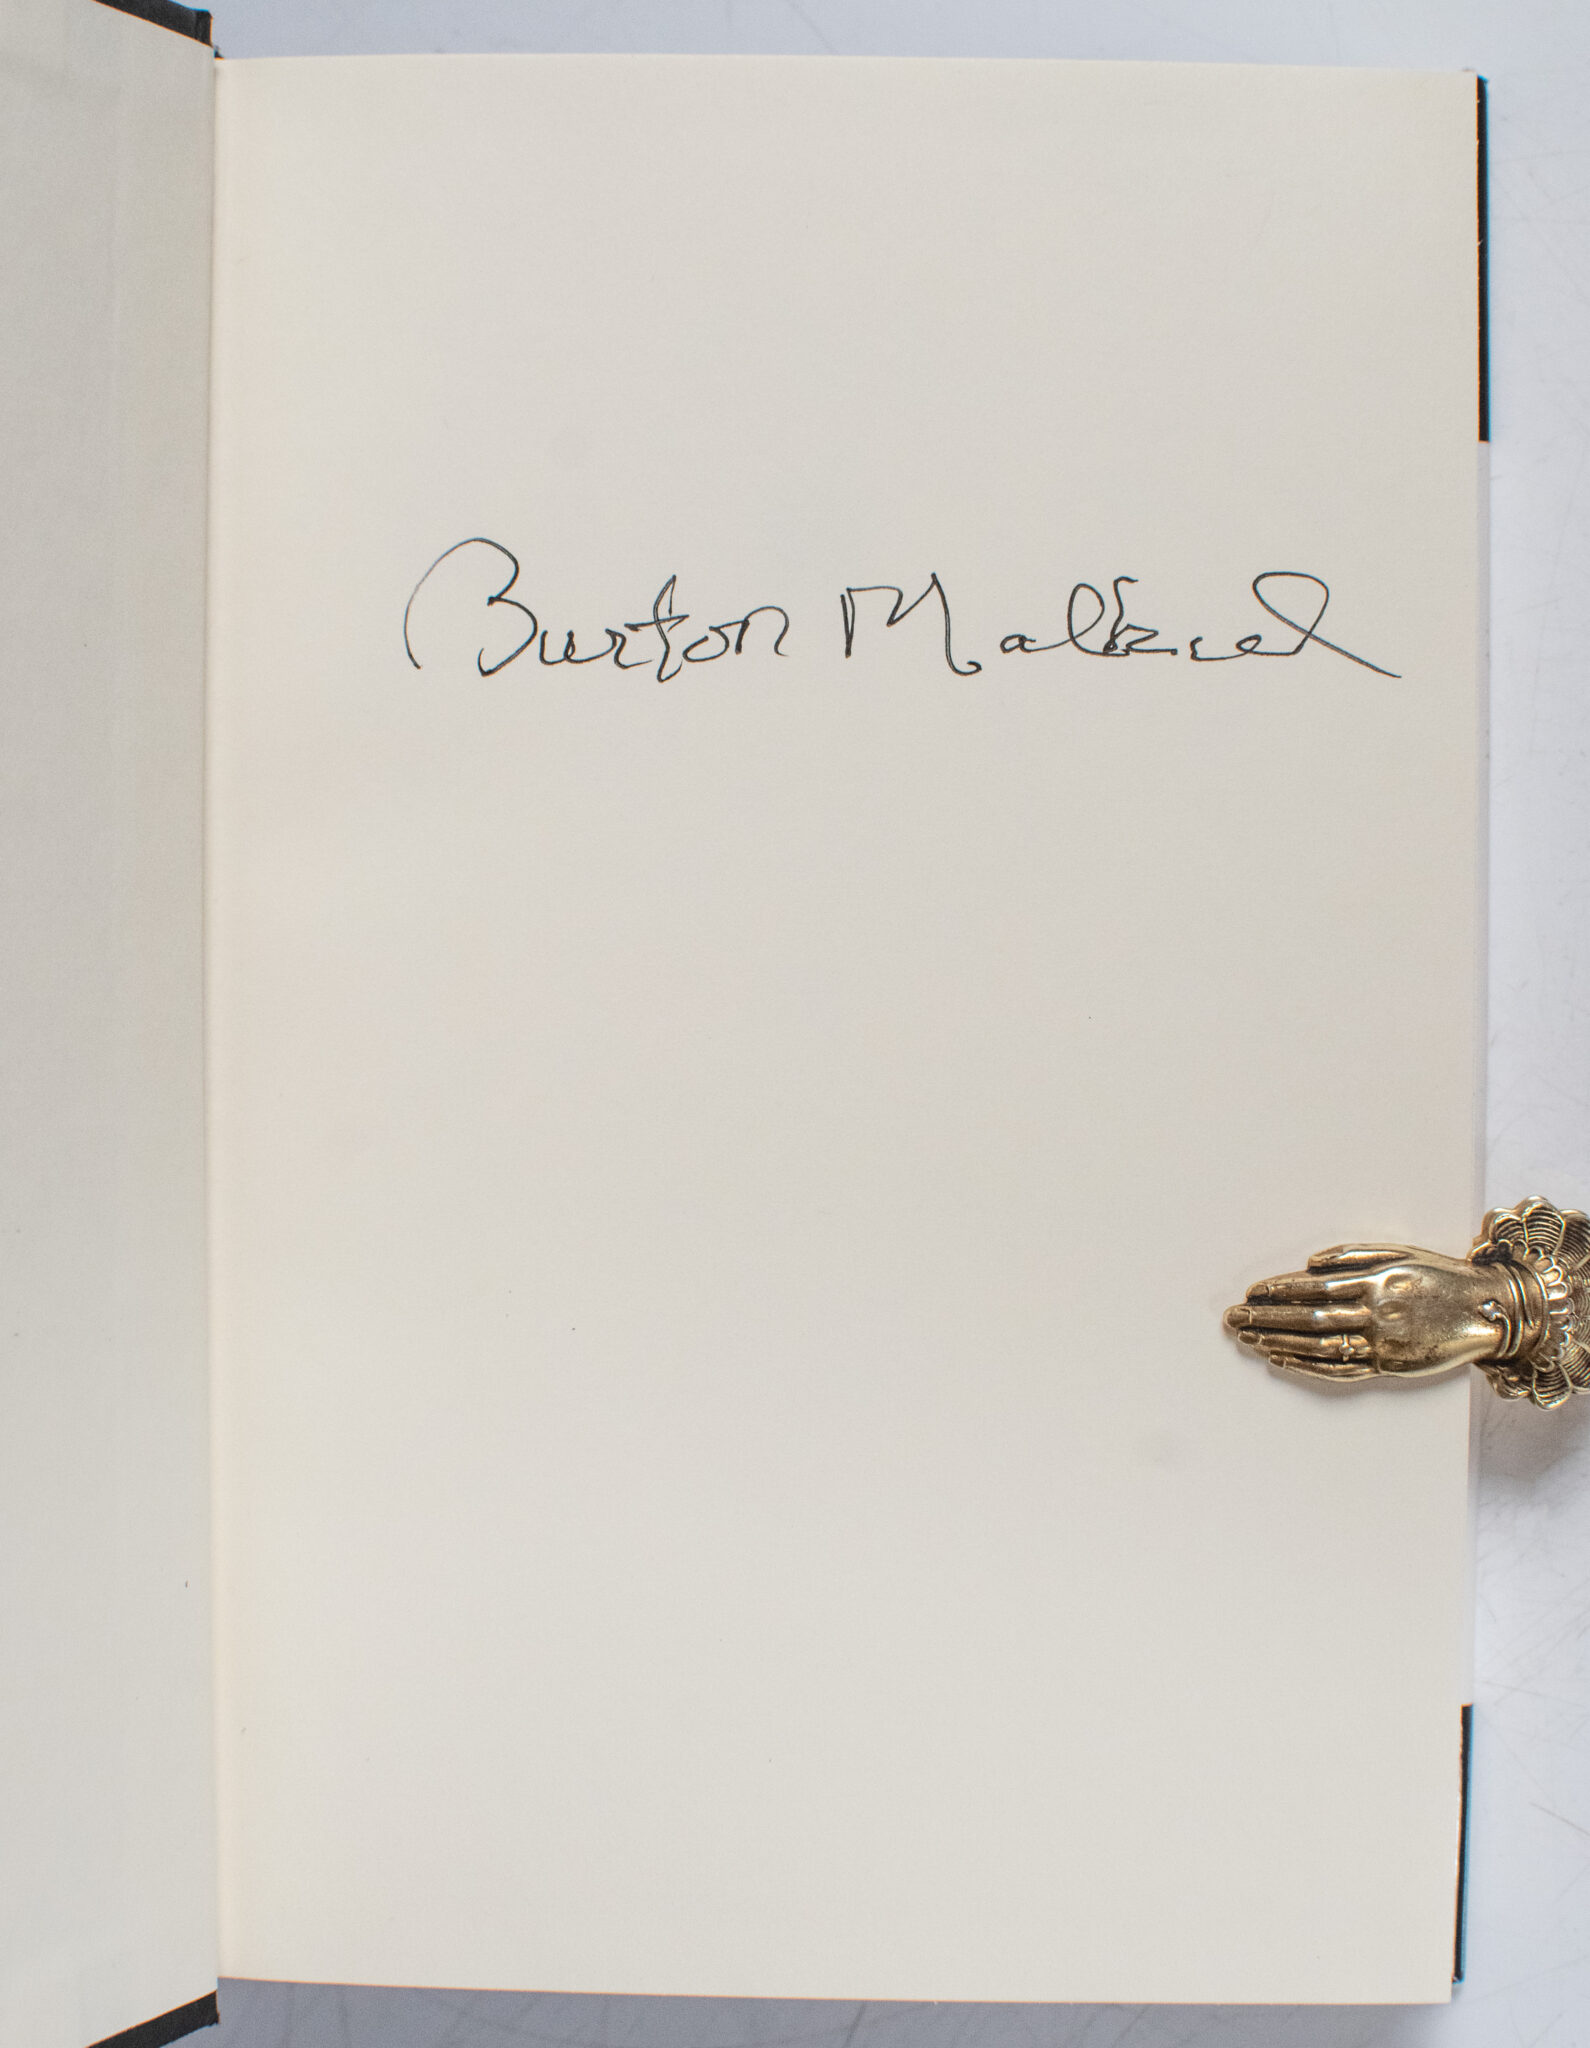 Burton Malkiel